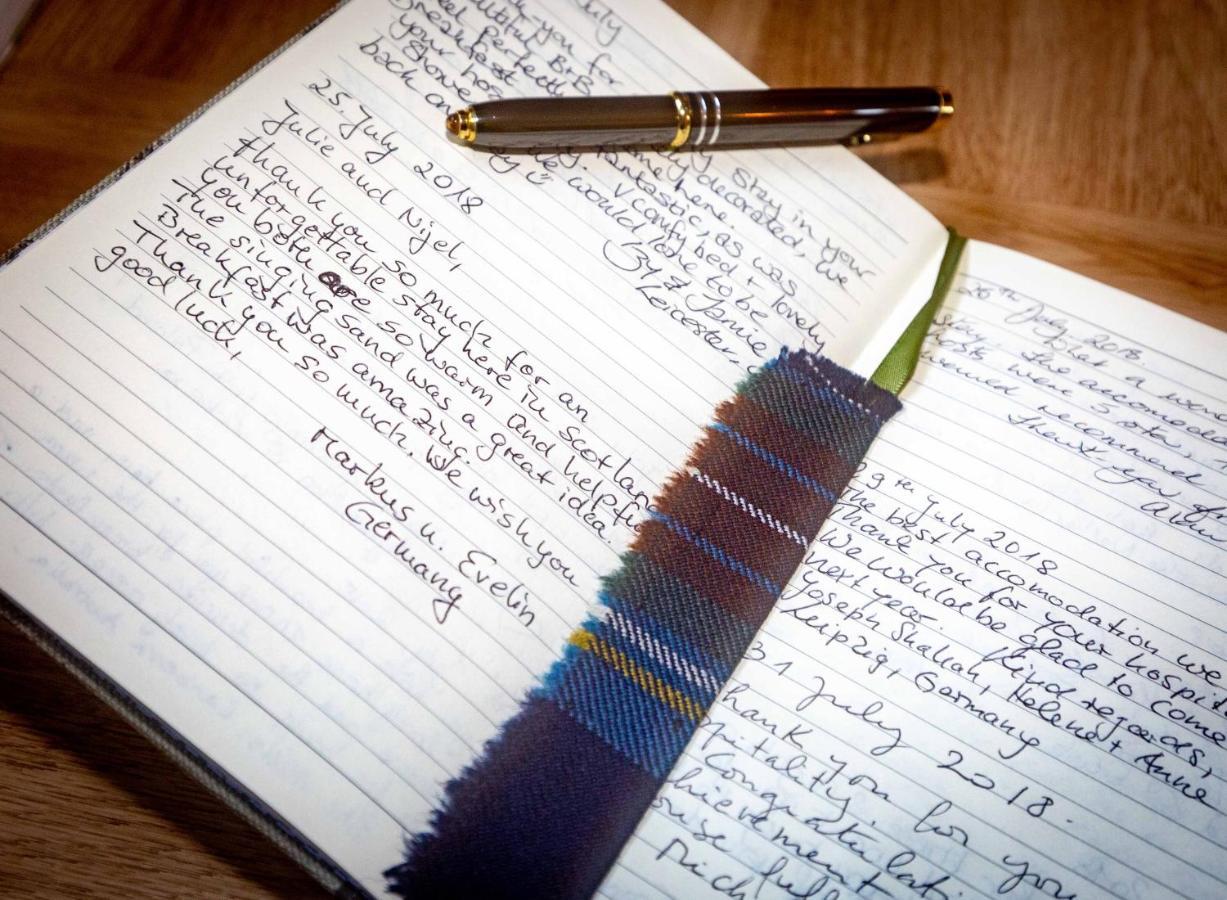 July
-you for
BrB.
feel perfectly
Breakfast
your hos
Shove
back on
decorated, we
Stay in your
here.
fantastic, as was
V comfy bed + lovely
We would love to be
Jamie
Leicester.
25. July 2018
Julie and Nijel,
thank you so much for an
unforgettable stay here in Scotlan
You both are so warm and helpfu
The singing sand was a great idea.
Breakfast was amazing.
Thank you so much. We wish you
good luck,
Markus u. Evelin
Germany
26th July 2018.
What a
stay. The accomoda
hosts were 5 star,
recommend
Thank you
29th July 2018
The best accomodation we
Thank you for your hospit
We would be glad to come
next year. Kind regards,
Joseph Shallah, Helene + Anne
Leipzig, Germany
31 July 2018.
hank you for you
pitality.
Congratulati
chievement
ouse full
Rich